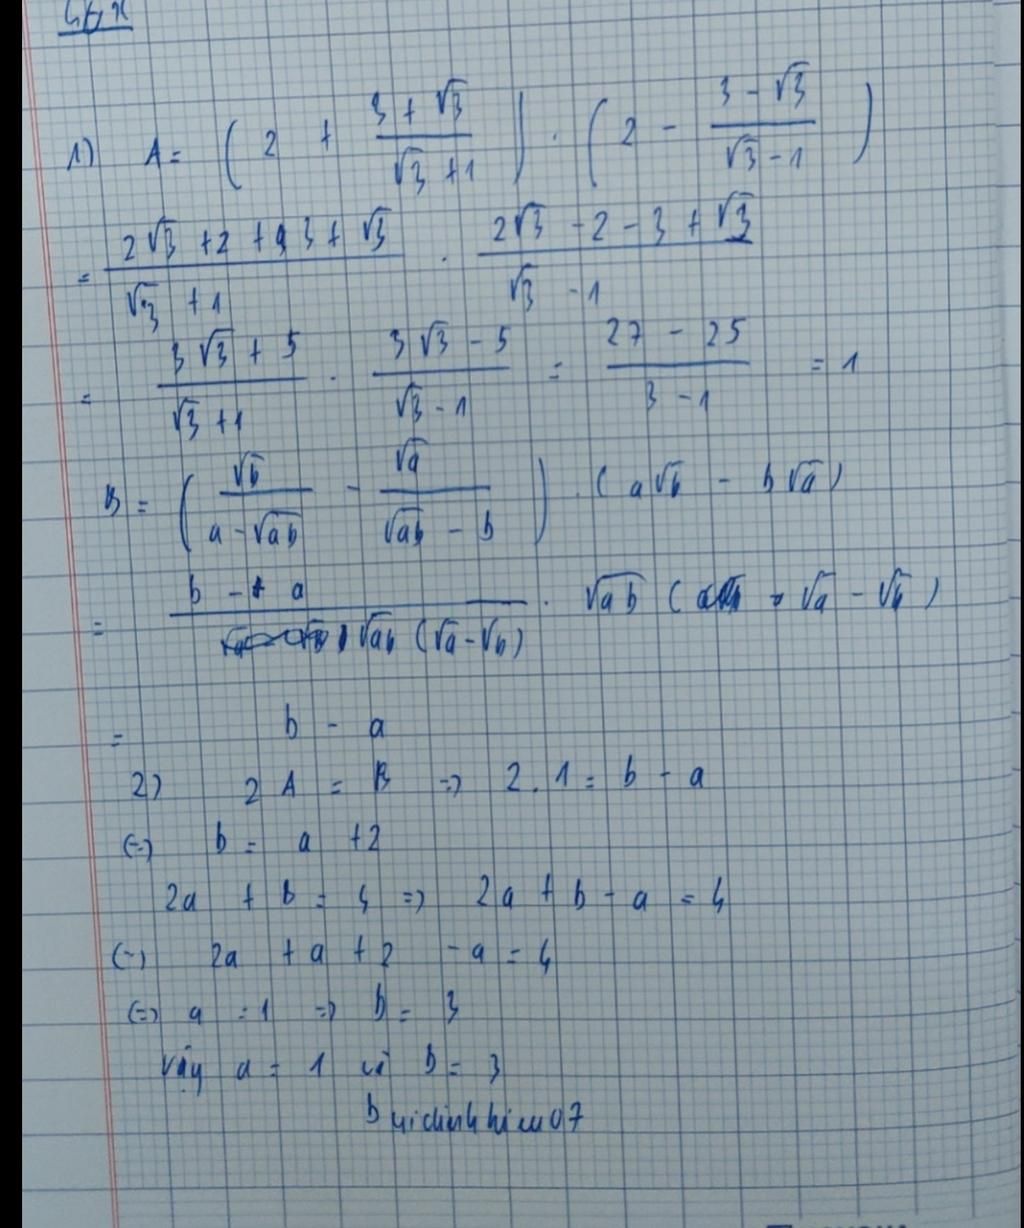 1) A = ( 2 + (3 + √3)/(√3 + 1) ) . ( 2 - (3 - √3)/(√3 - 1) )
= (2√3 + 2 + 3 + √3)/(√3 + 1) . (2√3 - 2 - 3 + √3)/(√3 - 1)
= (3√3 + 5)/(√3 + 1) . (3√3 - 5)/(√3 - 1) = (27 - 25)/(3 - 1) = 1
B = ( √b/(a - √ab) - √a/(√ab - b) ) . ( a√b - b√a )
= (b - a)/(√ab (√a - √b)) . √ab ( √a - √b )
= b - a
2) 2A = B => 2.1 = b - a
(=) b = a + 2
2a + b = 4 => 2a + b - a = 4
(=) 2a + a + 2 - a = 4
(=) a = 1 => b = 3
Vậy a = 1 và b = 3